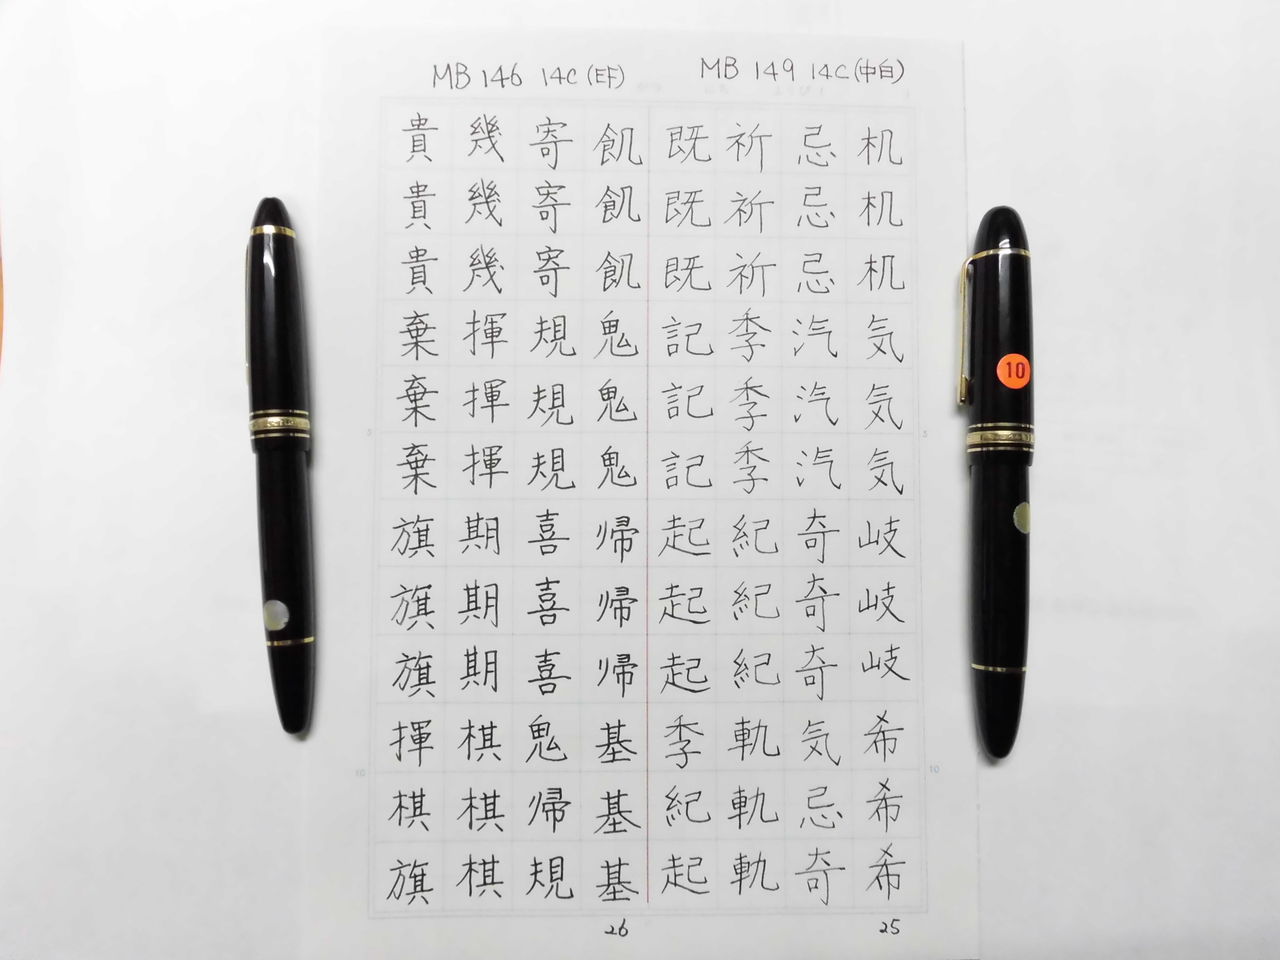 MB 149 14C (中白)
机机机気気気岐岐岐希希希
忌忌忌汽汽汽奇奇奇気忌奇
祈祈祈季季季紀紀紀軌軌軌
既既既記記記起起起季紀起
25
MB 146 14C (EF)
飢飢飢鬼鬼鬼帰帰帰基基基
寄寄寄規規規喜喜喜鬼帰規
幾幾幾揮揮揮期期期棋棋棋
貴貴貴棄棄棄旗旗旗揮棋旗
26
5
10
5
10
10